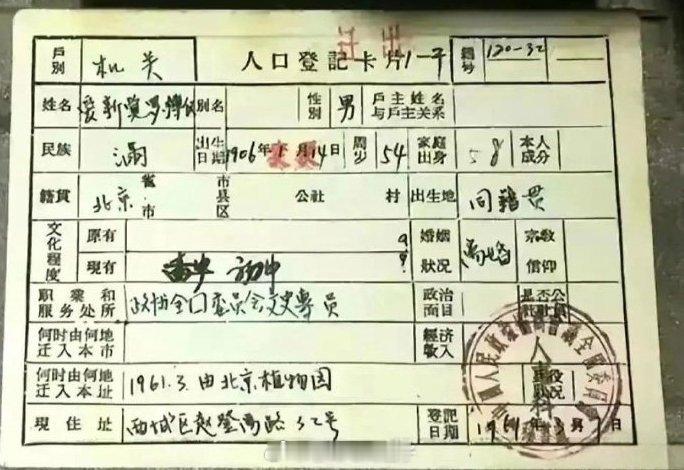 迁出
戶別 机关 人口登記卡片 1-子 籍号 120-32
姓名 爱新觉罗溥仪 別名 性別 男 戶主姓名与戶主关系
民族 滿 出生日期 1906年 月14日 周岁 54 家庭出身 本人成分
籍貫 北京 省市 市县区 公社 村 出生地 同籍贯
文化程度 原有 婚姻狀况 离婚 宗教信仰
現有 初中
职業和服务处所 政协全囗委员会文史專员 政治面目 是否公社社員
何时由何地迁入本市 經济收入
何时由何地迁入本址 1961.3.由北京植物园
現住址 西城区赵登禹路32号 登記日期 1961年3月 日
人事科